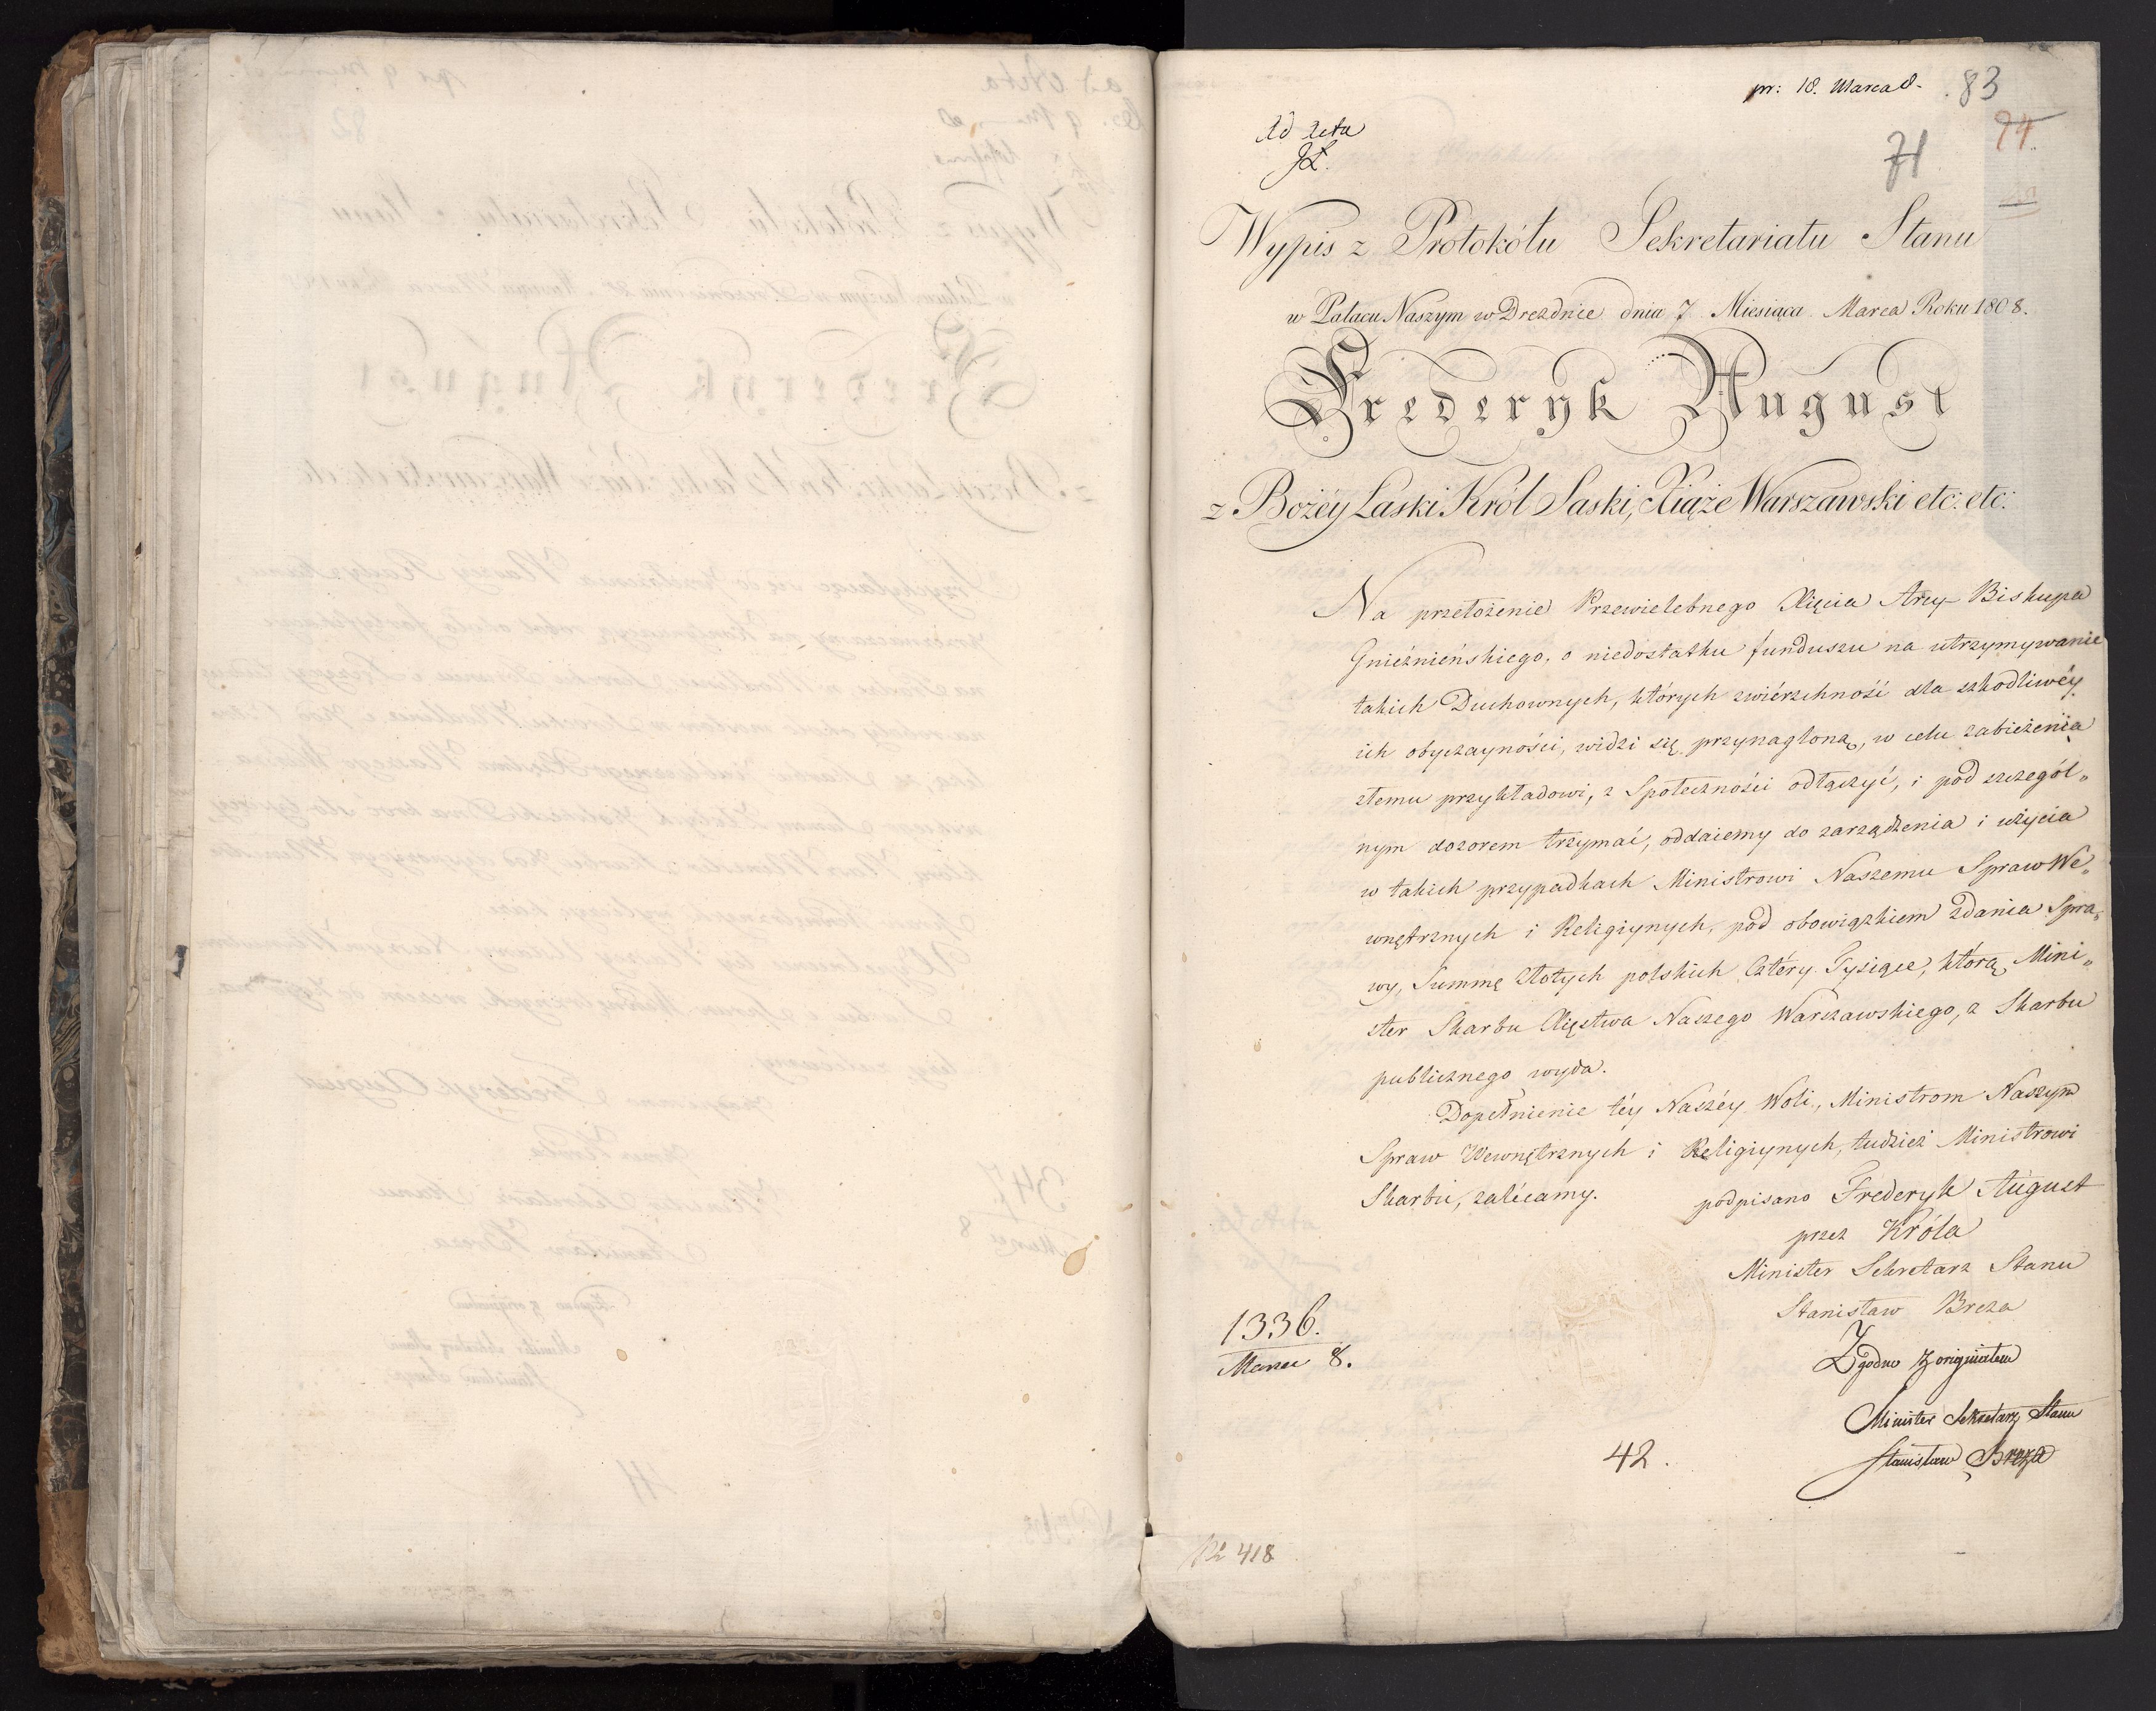 pr: 18. Marca 8.
83
94
71
Ad Acta
Wypis z Protokółu Sekretariatu Stanu
w Pałacu Naszym w Dreznie dnia 7 Miesiąca Marca Roku 1808.
Frederyk August
z Bożéy Łaski Król Saski, Xiąże Warszawski etc: etc:
Na przełożenie Przewielebnego Xięcia Arcy-Biskupa
Gnieźnieńskiego, o niedostatku funduszu na utrzymywanie
takich Duchownych, których zwiérzchność dla szkodliwéy
ich obyczayności, widzi się przynagloną, w celu zabieżenia
złemu przykładowi, z Społeczności odłączyć, i pod szczegól„
nym dozorem trzymać, oddaiemy do zarządzenia i użycia
w takich przypadkach Ministrowi Naszemu Spraw We„
wnętrznych i Religiynych, pod obowiązkiem zdania Spra„
wy, Summę Złotych polskich Cztéry Tysiące, którą, Mini„
ster Skarbu Xięstwa Naszego Warszawskiego, z Skarbu
publicznego wyda.
Dopełnienie téy Naszéy Woli, Ministrom Naszym
Spraw Wewnętrznych i Religiynych, tudzież Ministrowi
Skarbu, zalécamy.
podpisano Frederyk August
przez Króla
Minister Sekretarz Stanu
Stanisław Breza
1336.
Marca 8.
Zgodno z originałem
Minister Sekretarz Stanu
Stanisław Breza
42.
418